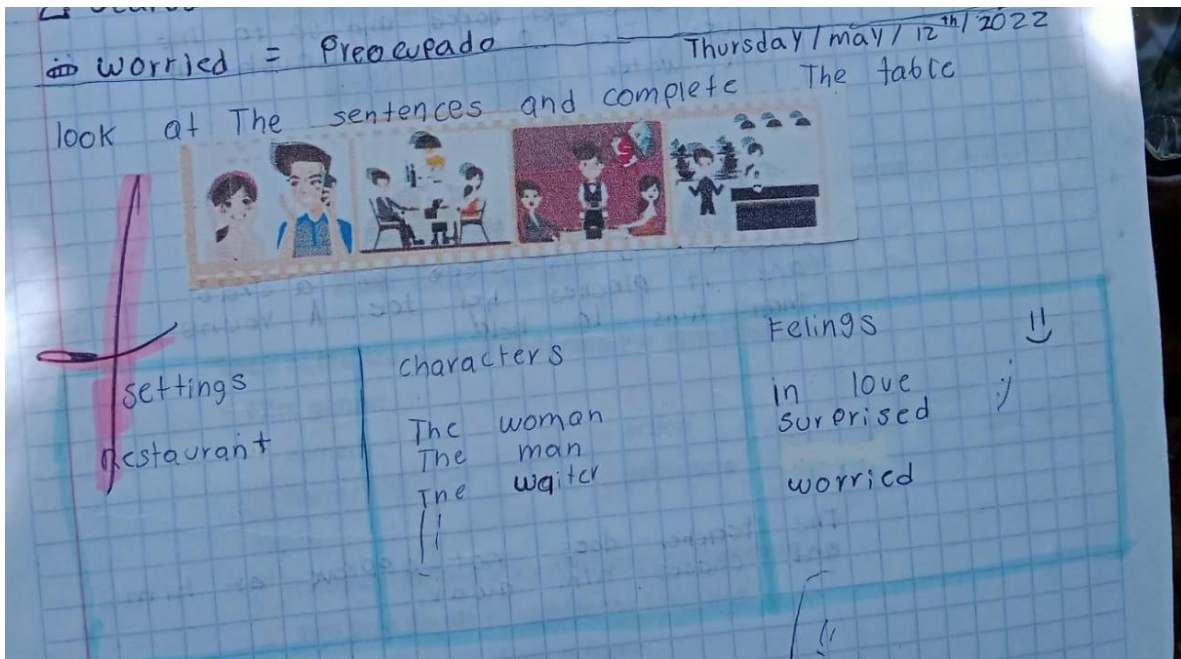 worried = Preocupado
Thursday / may / 12th / 2022
look at The sentences and complete The table
settings
Restaurant
characters
The woman
The man
The waiter
Felings
in love
surprised
worried